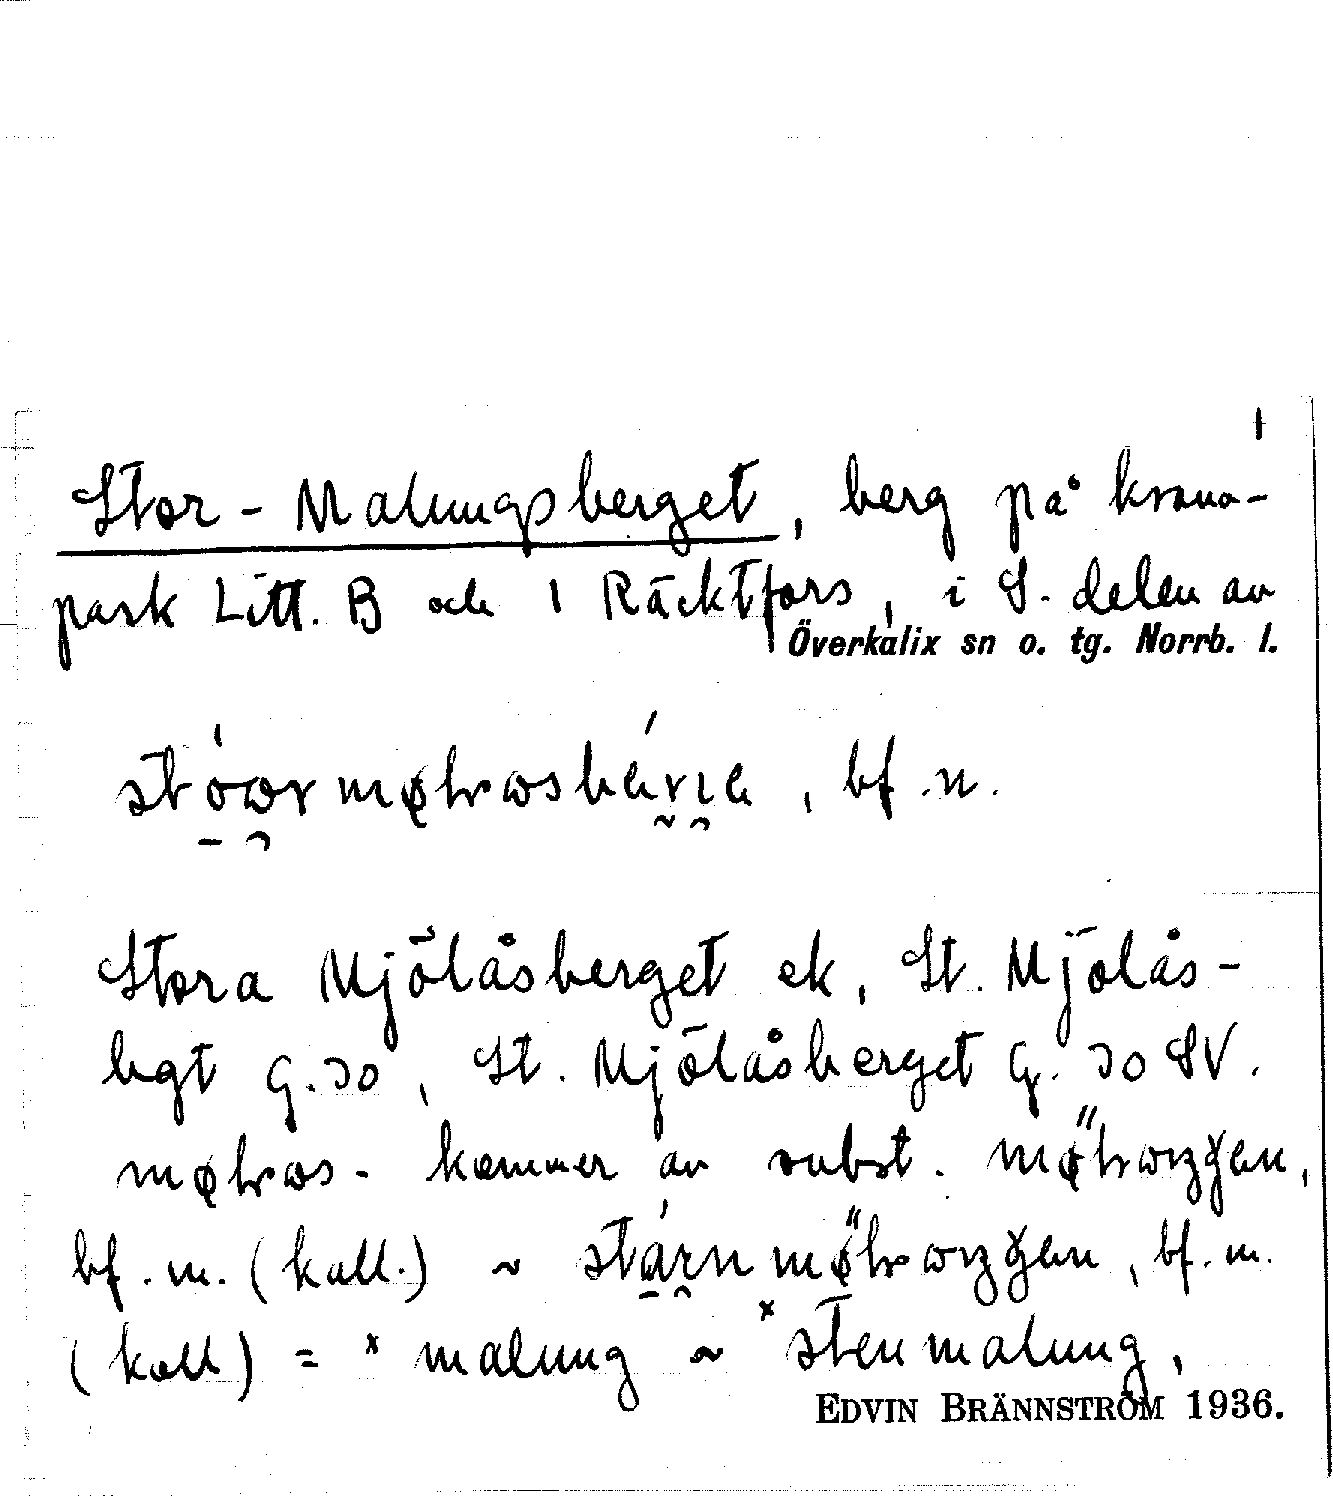 1
Stor-Malungsberget, berg på krono-
park Litt. B och 1 Räcktfors, i S. delen av
Överkalix sn o. tg. Norrb. l.
, bf. n.
Stora Mjölåsberget ek, St. Mjölås-
bgt G.30, St. Mjölåsberget G. 30 SV.
kommer av subst.
bf. m. (koll.) ~ , bf. m.
(koll) = *malung ~ *stenmalung,
EDVIN BRÄNNSTRÖM 1936.